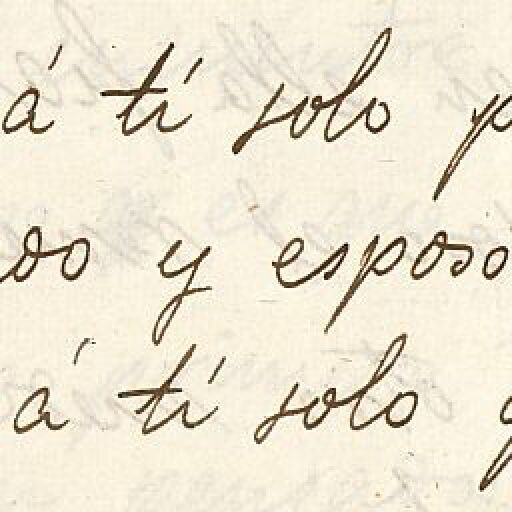 á tí solo p
do y esposo
á tí solo